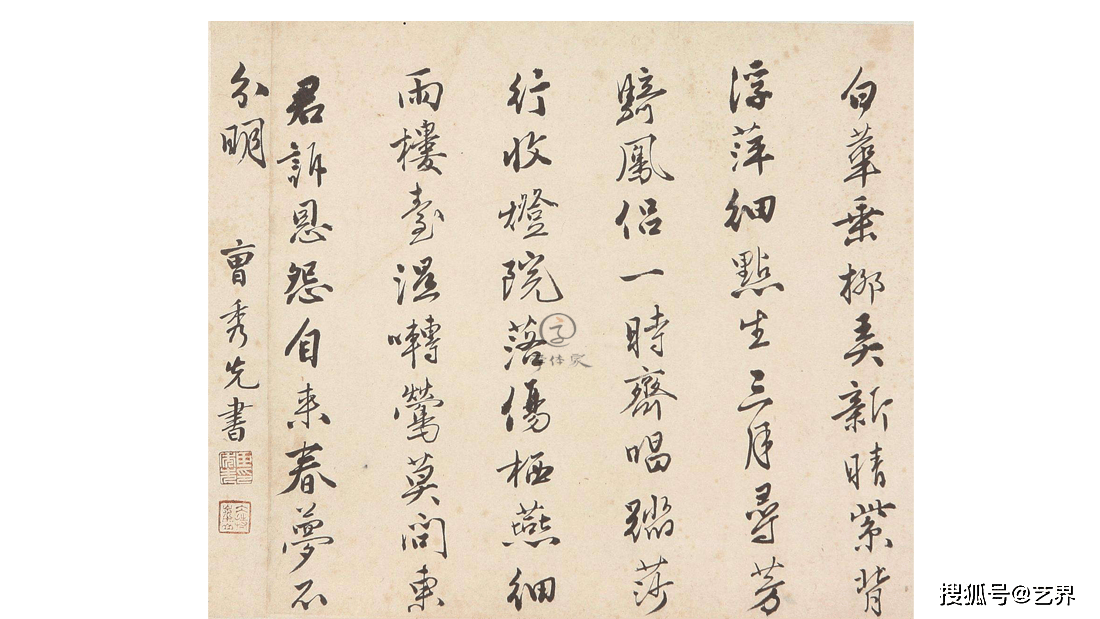 白華垂柳弄新晴紫背
浮萍細點生三月尋芳
騎鳳侶一時齊唱踏莎
行收燈院落傷栖燕細
雨樓臺濕囀鶯莫問東
君訴恩怨自來春夢不
分明 曹秀先書
字体家
搜狐号@艺界